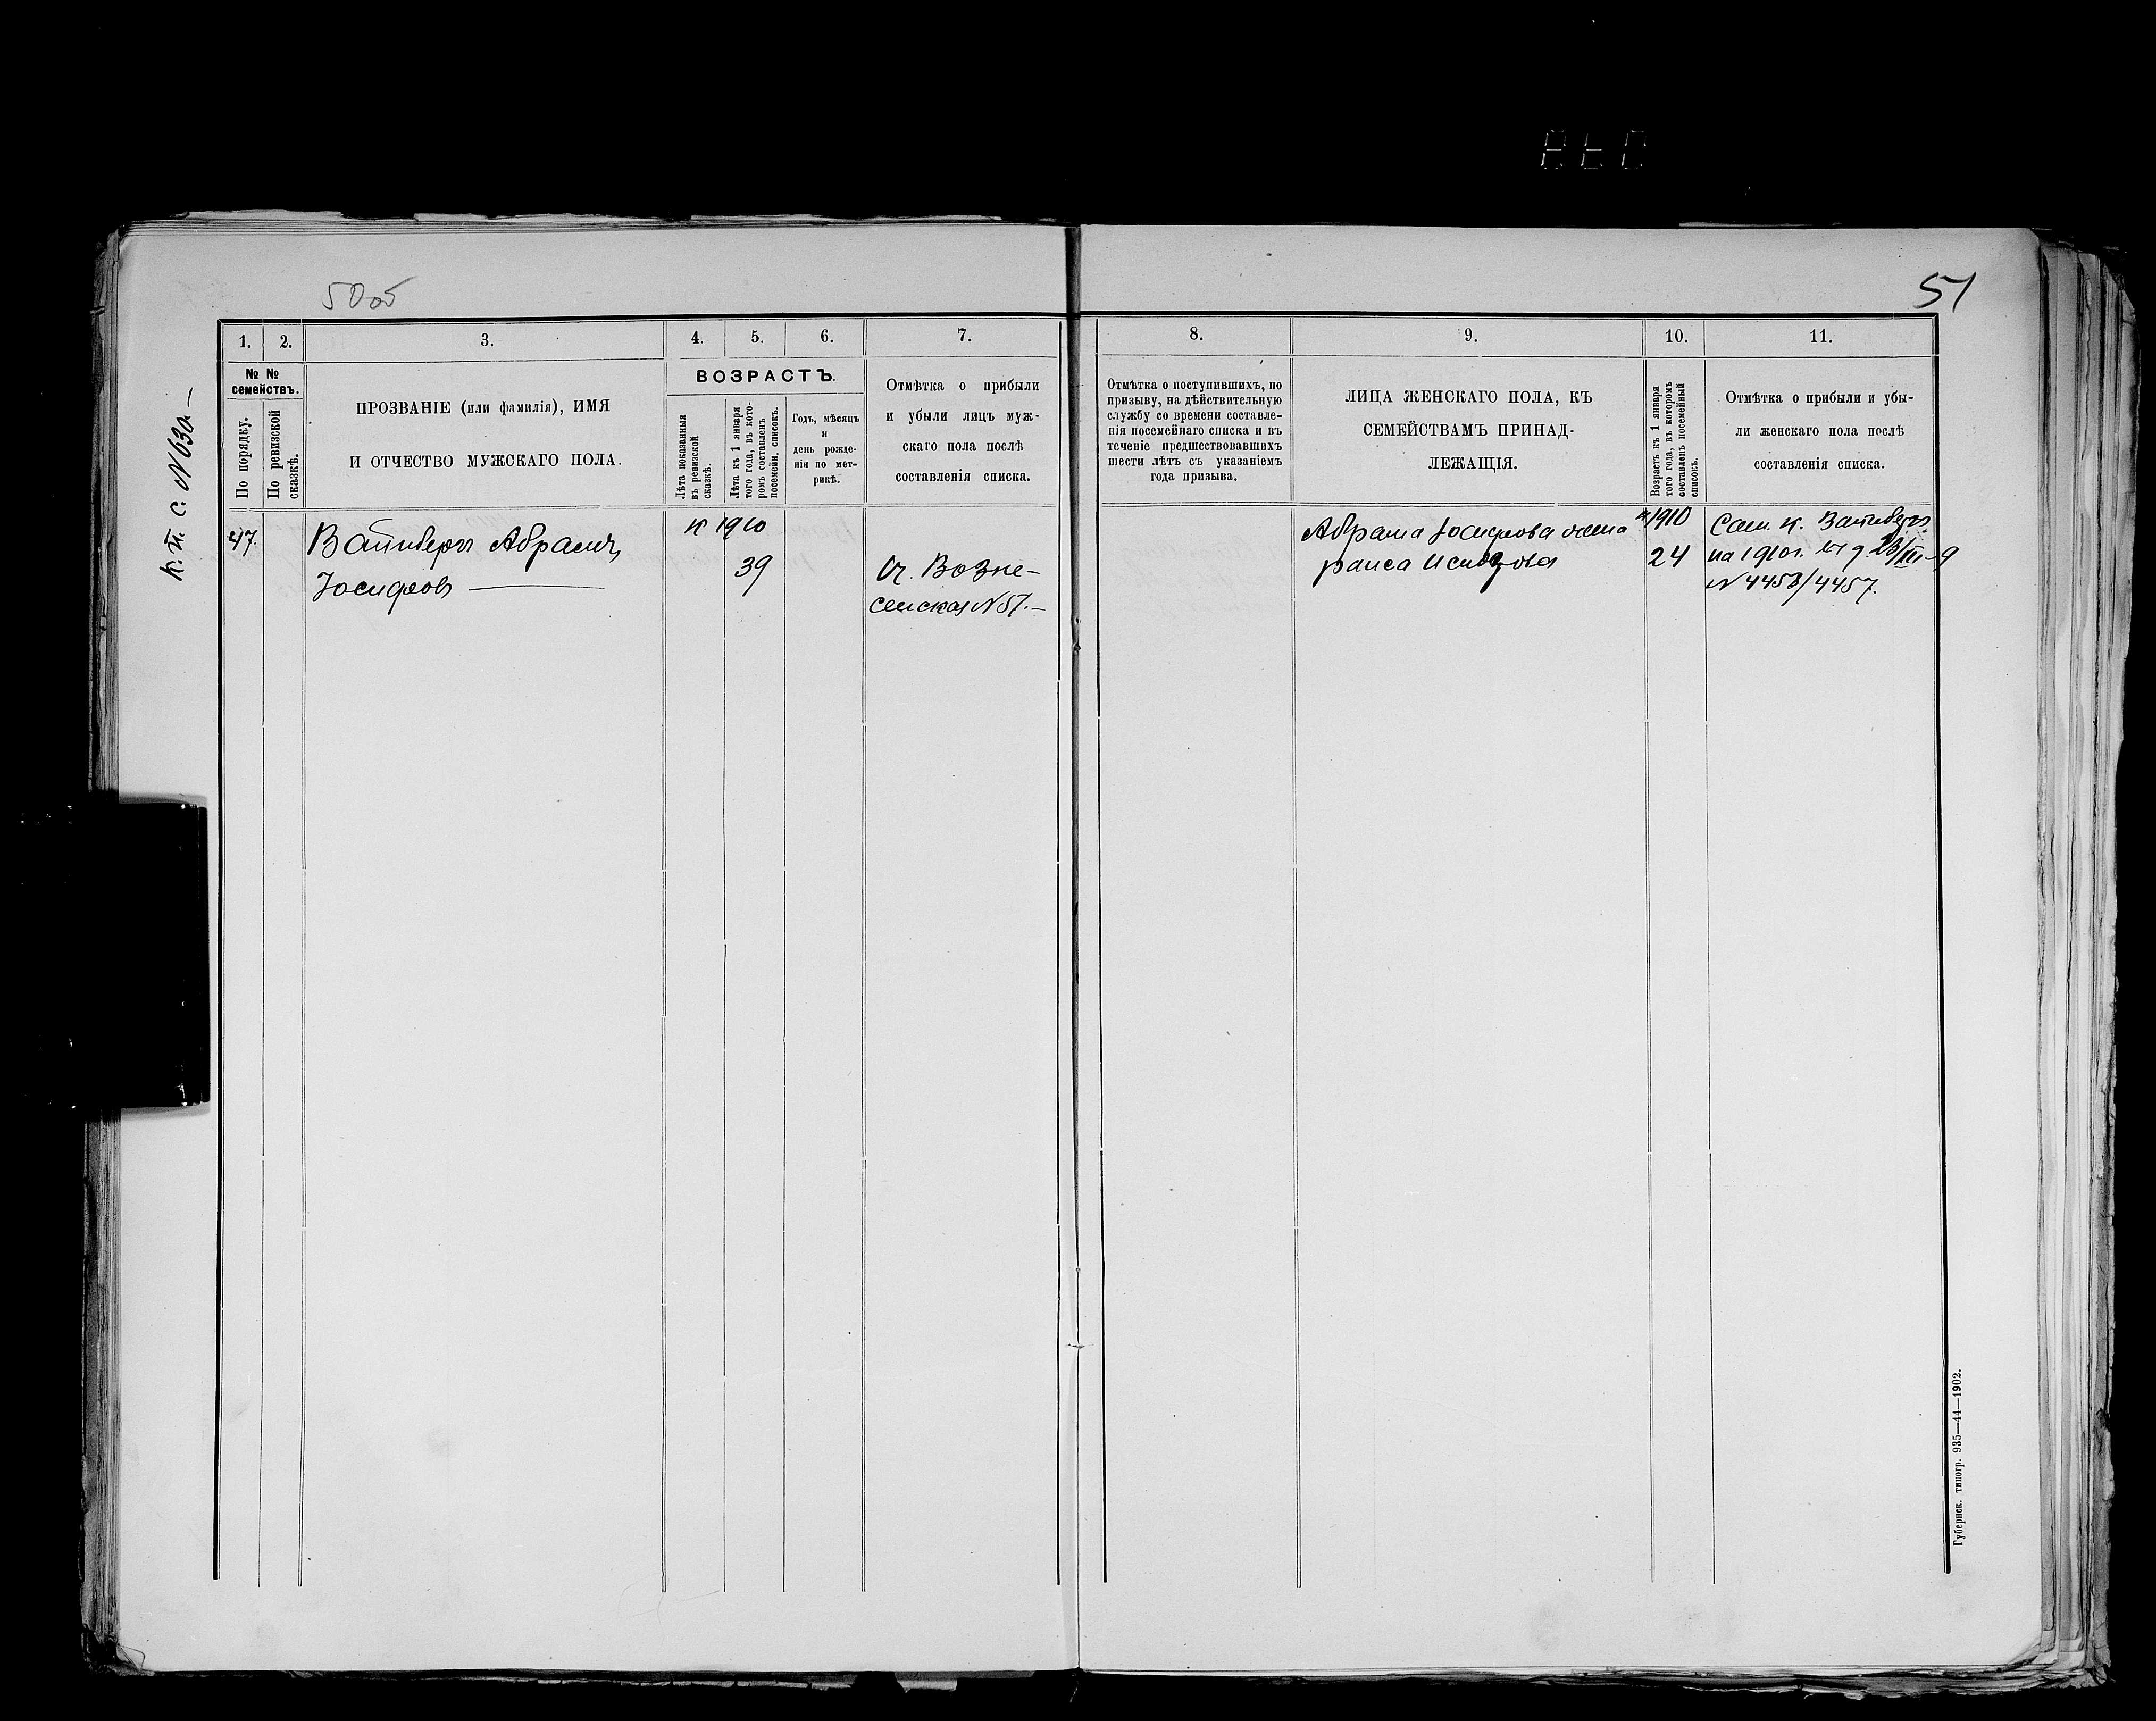 50 об
51
1. 2. 3. 4. 5. 6. 7.
№ №
семействъ.
По порядку.
По ревизской
сказкѣ.
ПРОЗВАНІЕ (или фамилія), ИМЯ
И ОТЧЕСТВО МУЖСКАГО ПОЛА.
ВОЗРАСТЪ.
Лѣта показанныя
въ ревизской
сказкѣ.
Лѣта къ 1 января
того года, въ кото-
ромъ составленъ
посемейн. списокъ.
Годъ, мѣсяцъ
и
день рожде-
нія по мет-
рикѣ.
Отмѣтка о прибыли
и убыли лицъ муж-
скаго пола послѣ
составленія списка.
К. п. с. № 630.—
47.
Абрамъ
Іосифовъ
к 1910
39
Возне-
сенская № 51.—
8. 9. 10. 11.
Отмѣтка о поступившихъ, по
призыву, на дѣйствительную
службу со времени составле-
нія посемейнаго списка и въ
теченіе предшествовавшихъ
шести лѣтъ съ указаніемъ
года призыва.
ЛИЦА ЖЕНСКАГО ПОЛА, КЪ
СЕМЕЙСТВАМЪ ПРИНАД-
ЛЕЖАЩІЯ.
Возрастъ къ 1 января
того года, въ которомъ
составленъ посемейный
списокъ.
Отмѣтка о прибыли и убы-
ли женскаго пола послѣ
составленія списка.
Абрама Іосифова жена
Раиса
к 1910
24
на 1910 г.
№ 4458/4457.
Губернск. типогр. 935—44—1902.